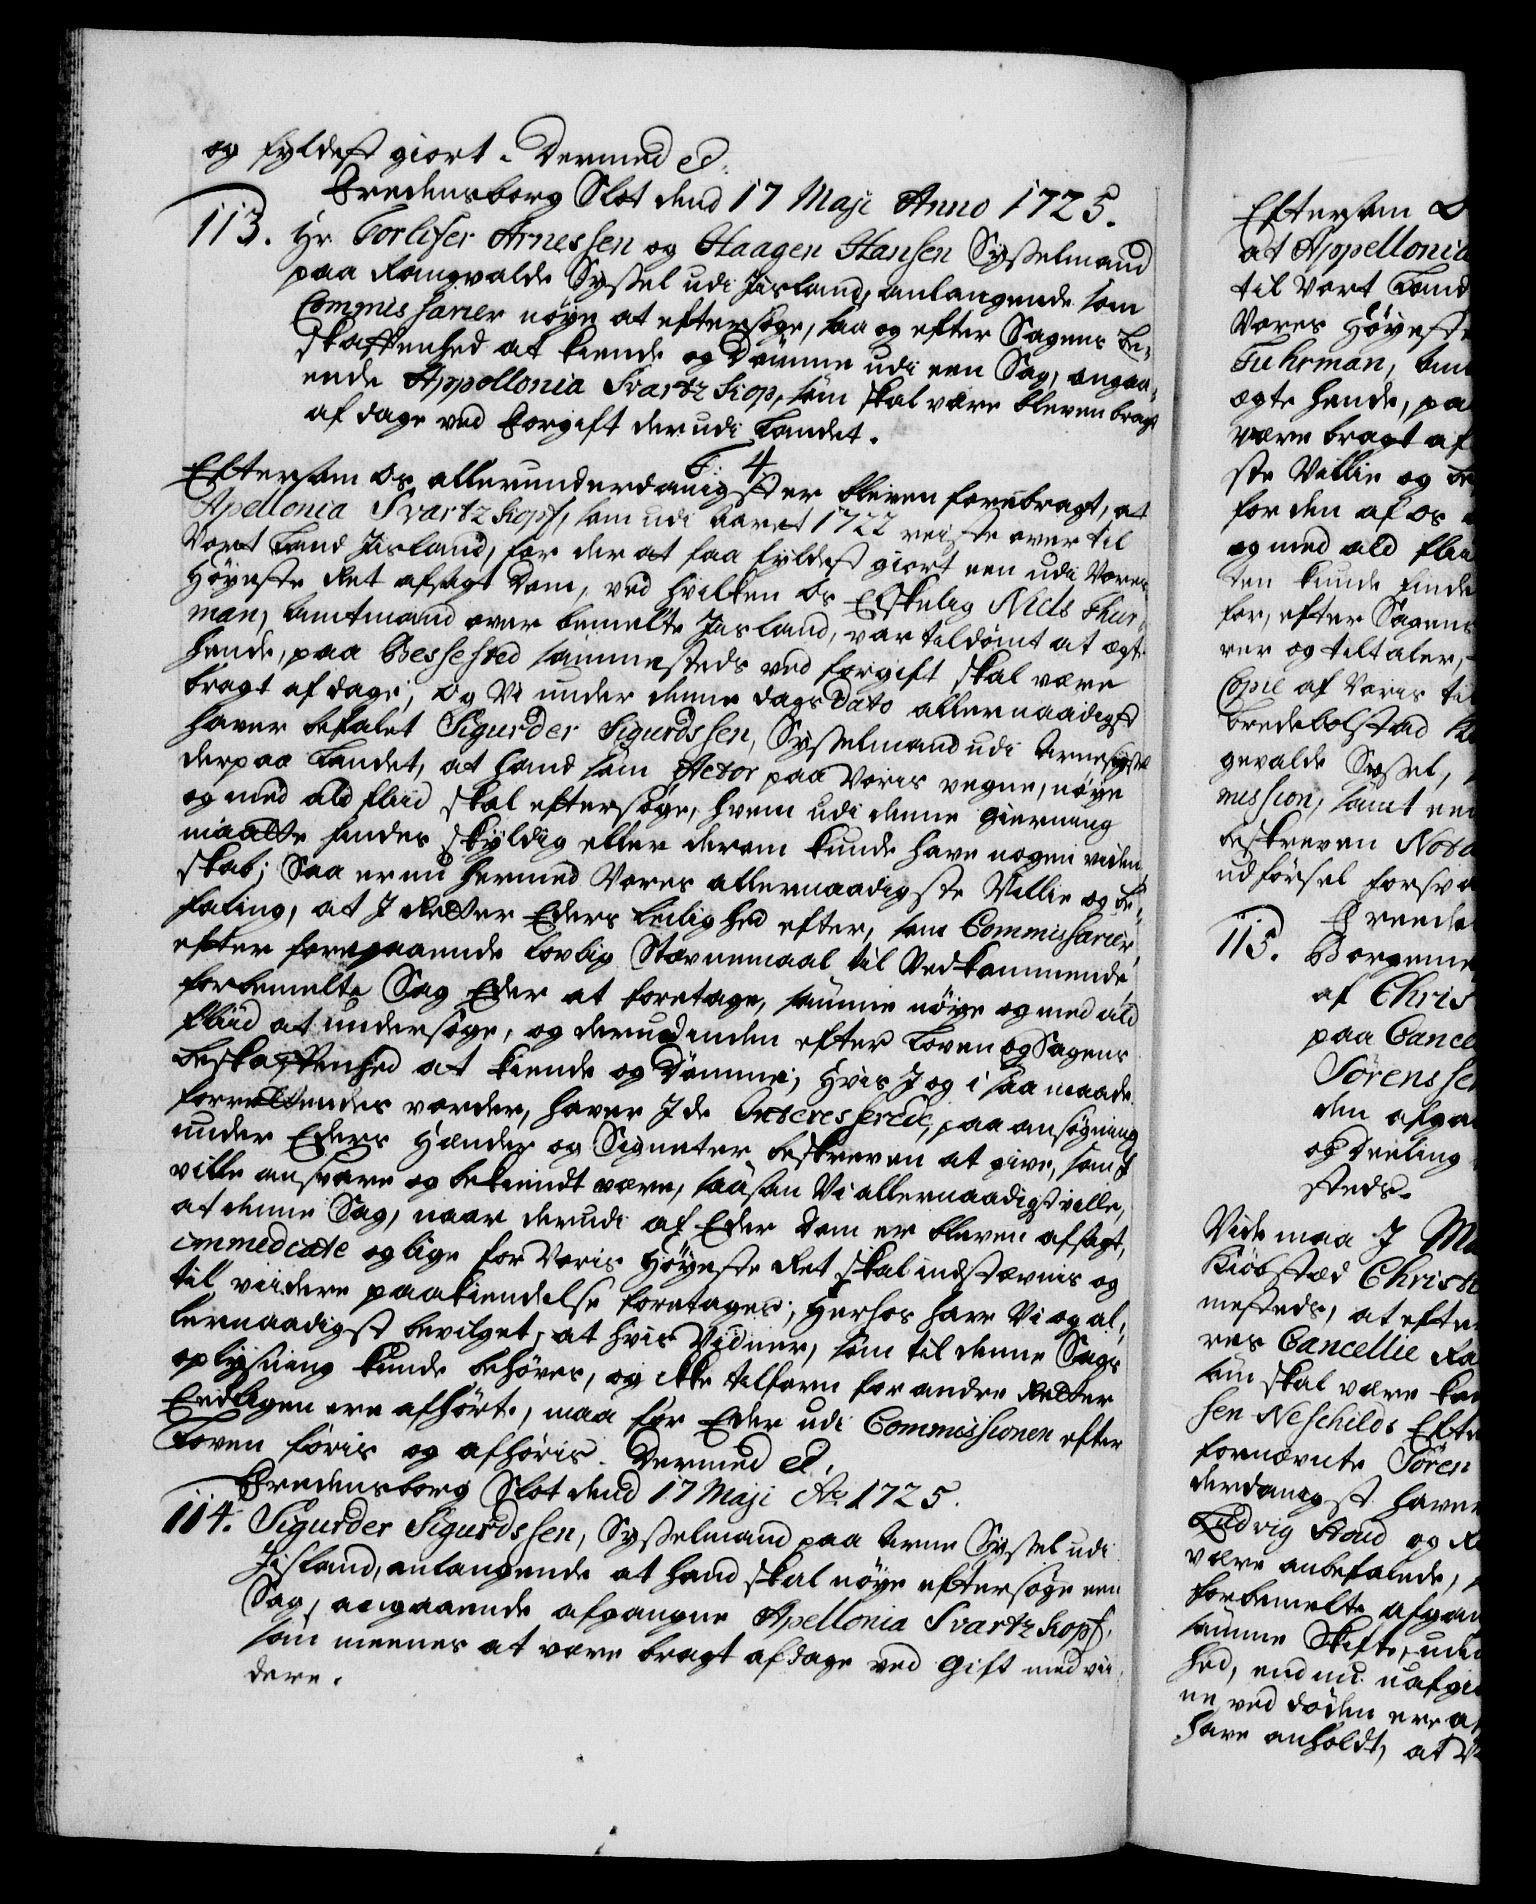 og fyldest giort. Dermed etc.
Fredensborg Slot dend 17 Maji Anno 1725.
113. Hr Torlifer Arnessen og Haagen Hansen Sysselmand
paa Rangvalde Syssel udi Jisland, anlangende som
Commissarier nøye at eftersøge, saa og efter Sagens be-
skaffenhed at kiende og Dømme udi een Sag, angaa-
ende Appollonia Svartz Kop, som skal være bleven bragt
af dage ved Forgift der udi Landet.
F: 4
Eftersom Os allerunderdanigst er bleven forebragt, at
Apellonia Svartz Kopf, som udi Aaret 1722 reiste over til
Vort Land Jisland, for der at faa fyldest giort een udi Vores
Høyeste Ret afsagt Dom, ved hvilken Os Elskelig Niels Fhur-
man, Amtmand over bemelte Jisland, var tildømt at ægte
hende, paa Bessested sammesteds ved forgift skal være
bragt af dage; og Vi under denne dags Dato allernaadigst
haver befalet Sigurder Sigurdssen, Sysselmand udi Arnesyssel
der paa Landet, at hand som Actor paa Voris vegne, nøye
og med ald fliid skal eftersøge, hvem udi denne gierning
maatte findes skyldig eller derom kunde have nogen viden-
skab; Saa er nu hermed Vores allernaadigste Villie og be-
faling, at J Retter Eders leilighed efter, som Commissarier,
efter foregaaende lovlig Stævnemaal til Vedkommende,
forbemelte Sag Eder at foretage, samme nøye og med ald
fliid at undersøge, og derudinden efter Loven og Sagens
beskaffenhed at kiende og Dømme; Hvis J og i saa maade
forrettendes vorder, haver J de Interesserede, paa ansøgning
under Eders Hænder og Signeter beskreven at give, som J
ville ansvare og bekiendt være, saasom Vi allernaadigst ville,
at denne Sag, naar derudi af Eder Dom er bleven afsagt,
immediate og lige for Voris Høyeste Ret skal indstævnis og
til viidere paakiendelse foretages; Herhos have Vi og al-
lernaadigst bevilget, at hvis Vidner, som til denne Sags
oplysning kunde behøves, og ikke tilforn for andre Retter
Eedligen ere afhørte, maa for Eder udi Commissionen efter
Loven føris og afhøris. Dermed etc.
Fredensborg Slot dend 17 Maji Ao 1725.
114. Sigurder Sigurdssen, Sysselmand paa Arne Syssel udi
Jisland, anlangende at hand skal nøye eftersøge een
Sag, angaaende afgangne Apellonia Svartz Kopf,
som meenes at være bragt af dage ved Gift med vii-
dere.
Eftersom
at Appellonia
til Vort Land
Vores Høyeste
Fuhrman, Am
ægte hende, pa
være bragt af
ste Villie og be
for den af os
og med ald flii
ten kunde finde
for, efter Sagens
rer og tiltaler,
Copie af Voris til
Bredebolstad
gevalde Syssel,
mission, samt een
beskreven Nota
udførsel forsva
115. Freede
Borgeme
af Chris
paa Cance
Sørensse
den afga
og deeling
steds.
Vide maa J Ma
Kiøbsted Christ
mesteds, at efter
res Cancellie Ra
som skal være
sen Neschilds Efte
fornævnte Søren
derdanigst haver
Ludvig Stoud og
være anbefalede,
forbemelte afgan
samme Skifte, uden
hed, endnu uafgi
ne ved døden ere a
have anholdt, at V